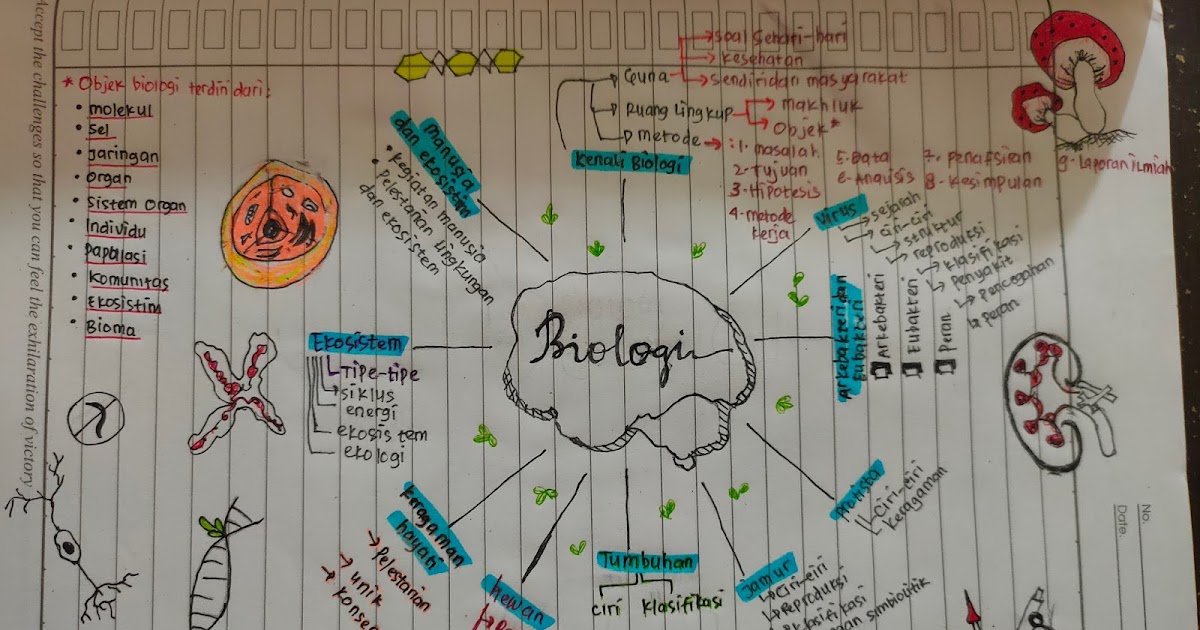 Accept the challenges so that you can feel the exhilaration of victory
* Objek biologi terdiri dari:
• molekul
• Sel
• Jaringan
• Organ
• Sistem Organ
• Individu
• Papalasi
• Komunitas
• Ekosistim
• Bioma
manusia
dan ekosistem
• Kegiatan manusia
• Pelestarian lingkungan
dan ekosistem
soal Sehari-hari
Kesehatan
Sendiri dan masyarakat
Ruang lingkup
makhluk
Objek*
metode
Kenali Biologi
: 1. masalah
2. Tujuan
3. Hipotesis
4. metode
kerja
5. Data
6. Analisis
7. Penafsiran
8. Kesimpulan
9. Laporan ilmiah
Virus
sejarah
ciri-ciri
struktur
reproduksi
klasifikasi
Penyakit
Pencegahan
Peran
Arkebakteri dan
Eubakteri
Arkebakteri
Eubakteri
Peran
Biologi
Ekosistem
Tipe-tipe
siklus
energi
ekosistem
ekologi
Protista
Ciri-ciri
Keragaman
Keragaman
hayati
Pelestarian
unik
hewan
Tumbuhan
Ciri
Klasifikasi
Jamur
Ciri-ciri
Reproduksi
Klasifikasi
simbiolitik
No.
Date.